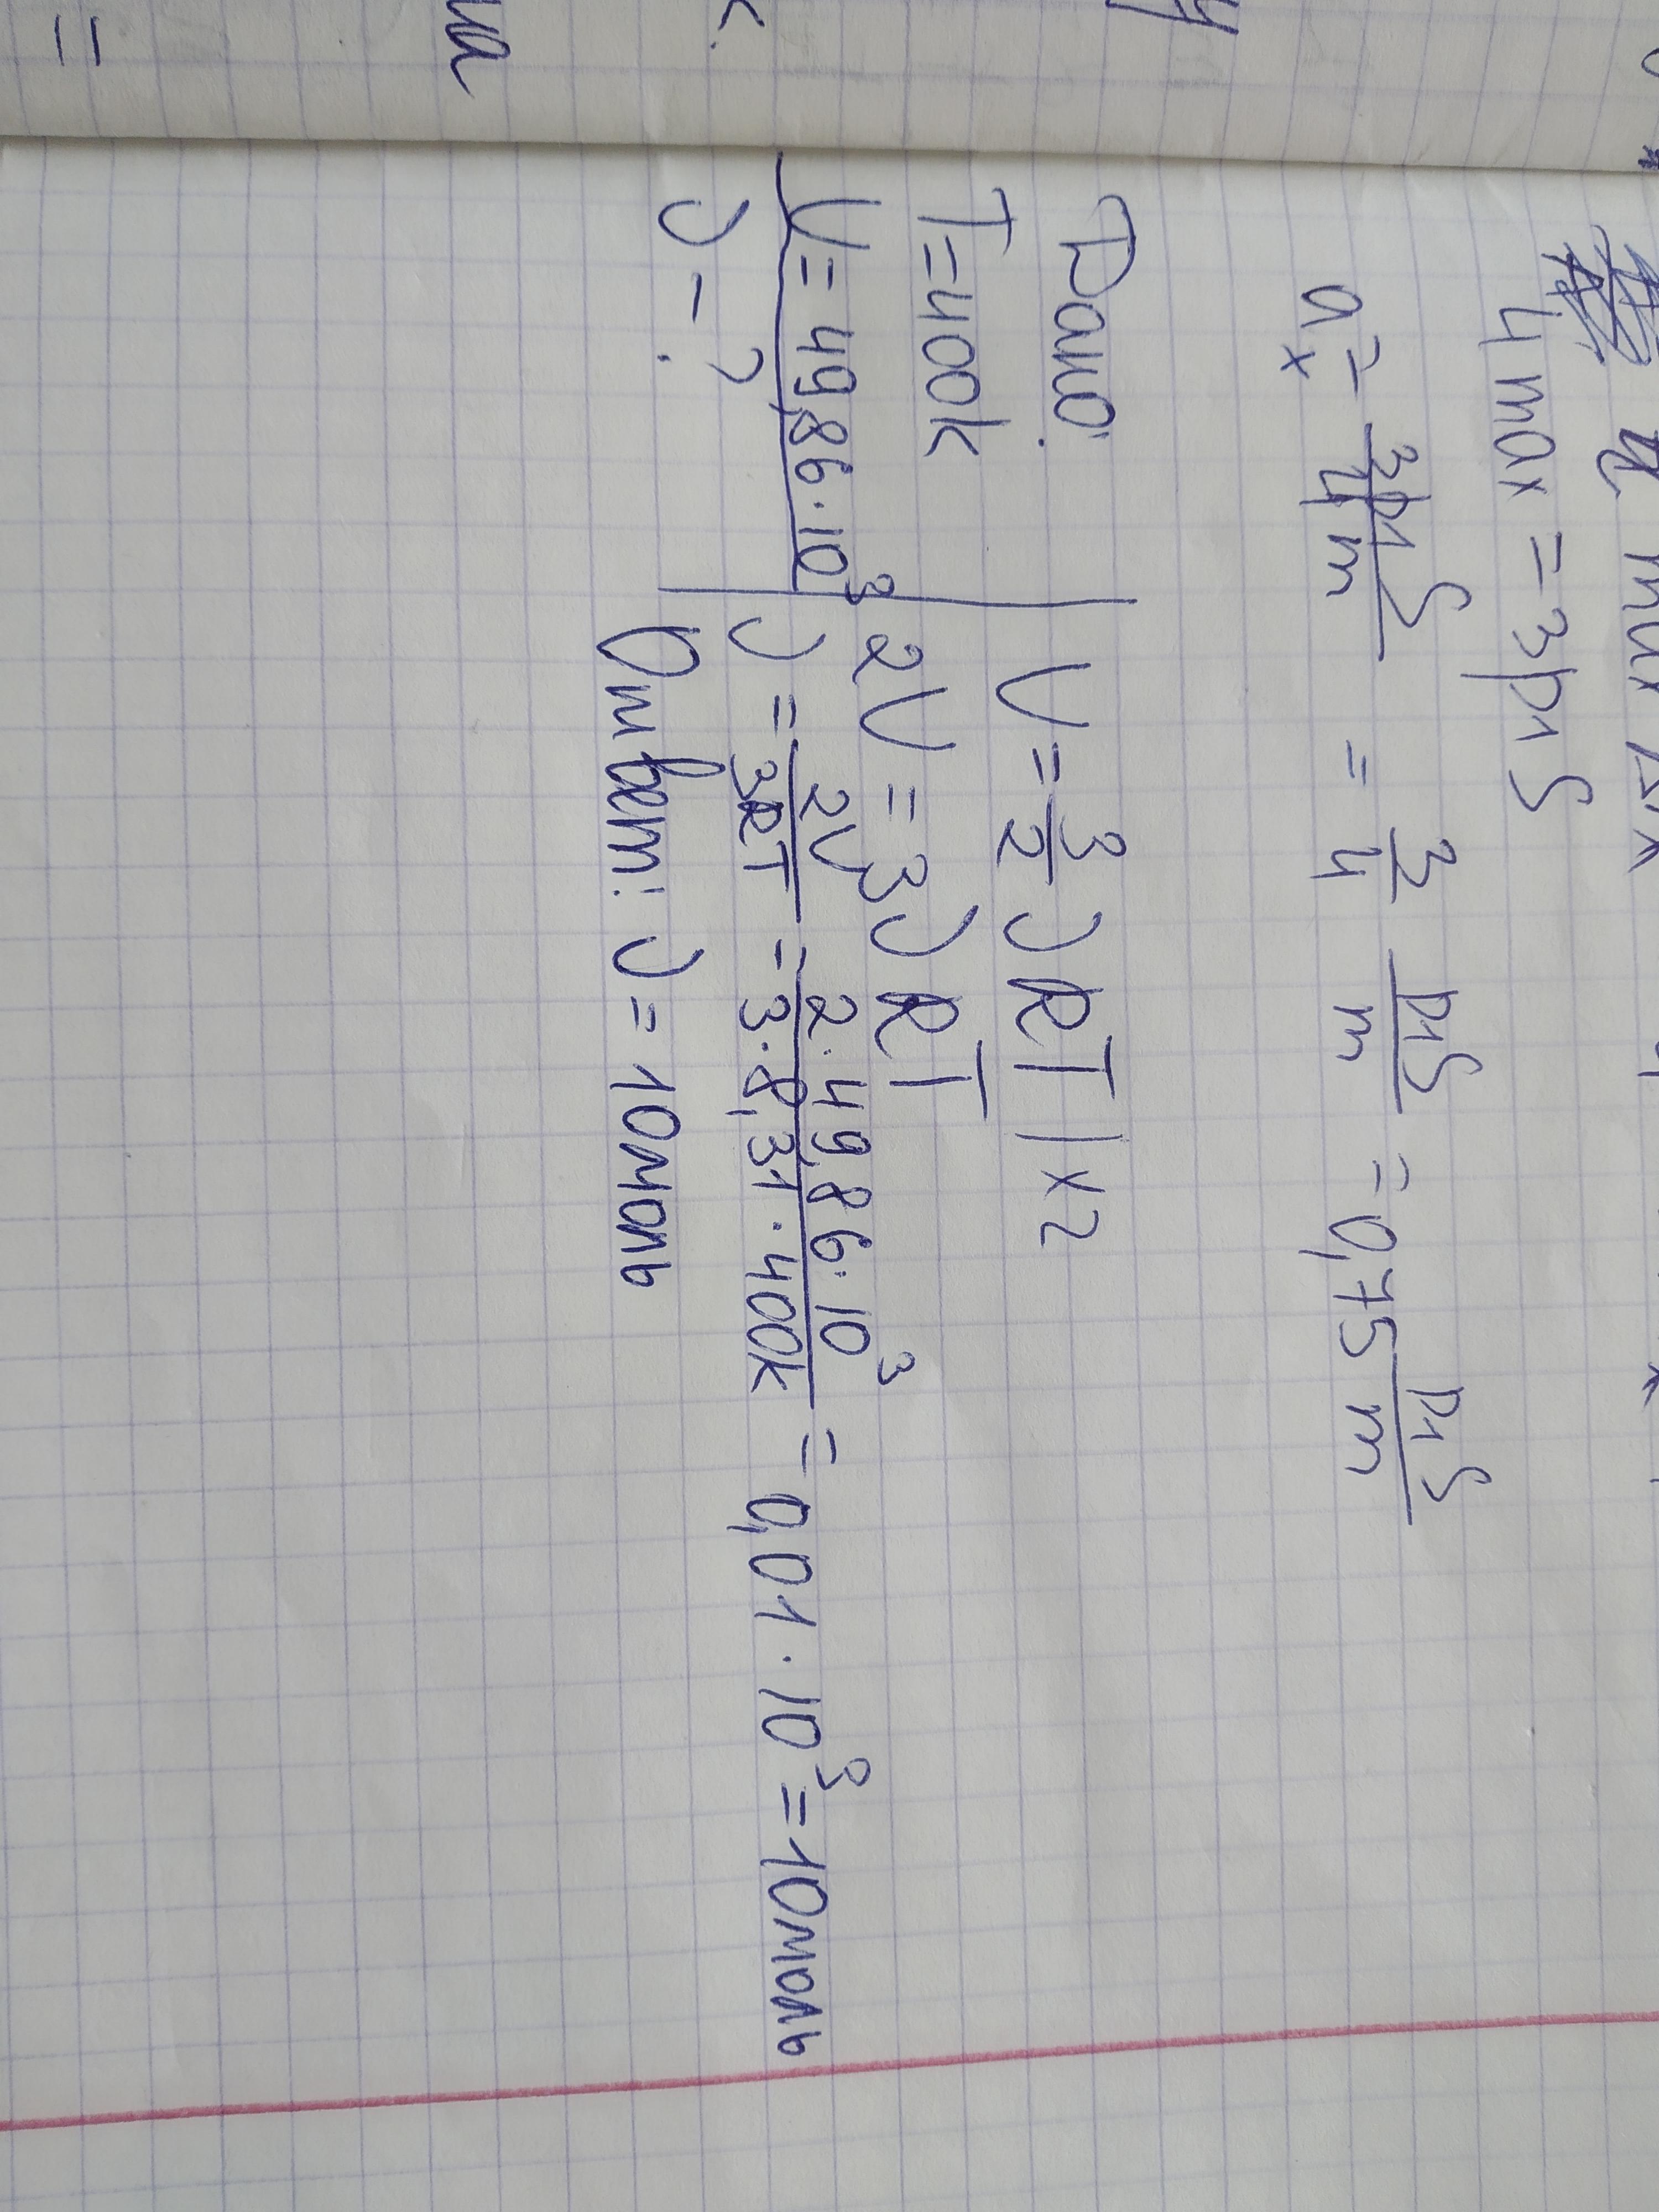 4max = 3p₁S
aₓ = 3p₁S/4m = 3/4 p₁S/m = 0,75 p₁S/m
Дано:
T=400k
U = 49,86·10³
ν - ?
U = 3/2 νRT | x2
2U = 3νRT
ν = 2U/3RT = 2·49,86·10³/3·8,31·400k = 0,01·10³ = 10моль
Ответ: ν = 10моль